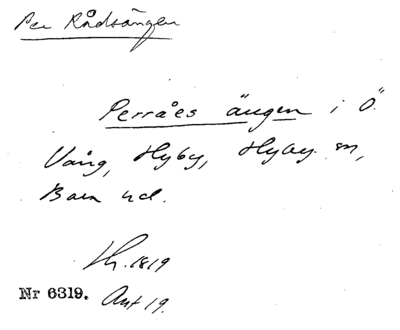 Per Rådsängen
Perråes ängen i Ö.
Vång, Hyby, Hyby sn,
Bara hd.
Lh. 1819
Nr 6319. Akt 19.